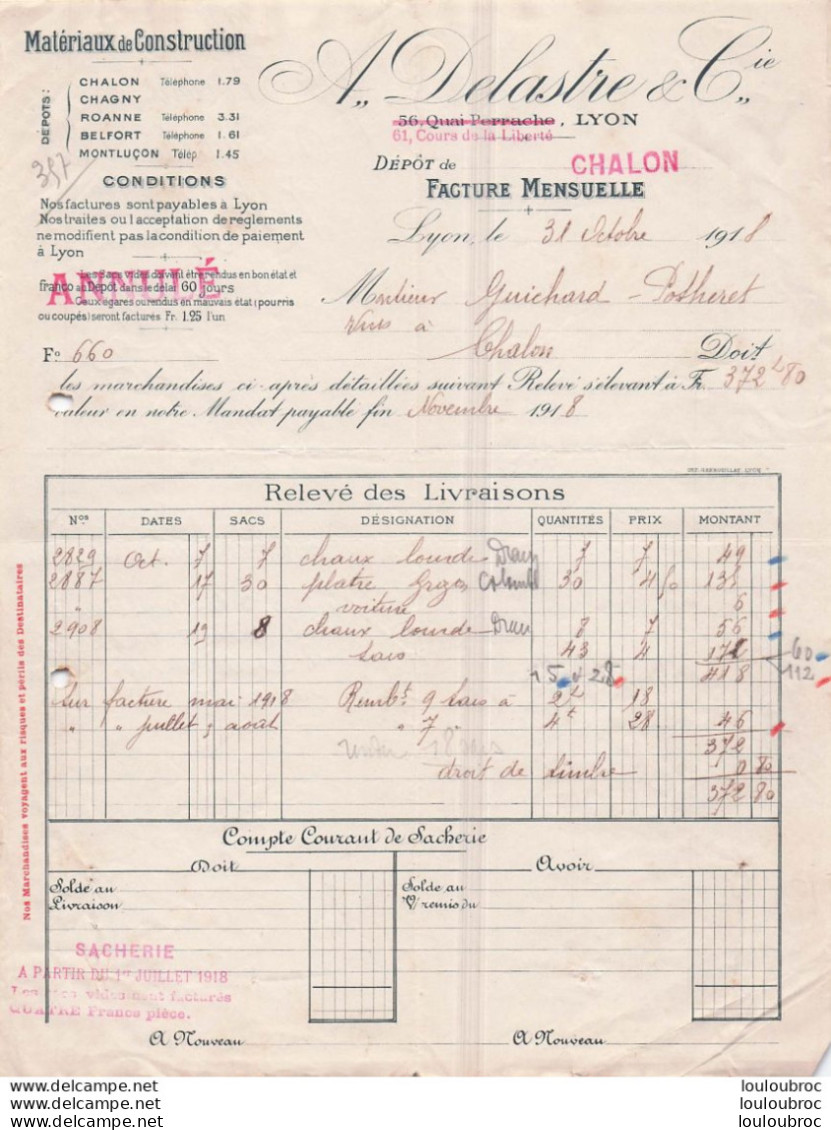 Matériaux de Construction
DÉPOTS:
CHALON Téléphone 1.79
CHAGNY
ROANNE Téléphone 3.31
BELFORT Téléphone 1.61
MONTLUÇON Télép 1.45
397
CONDITIONS
Nos factures sont payables à Lyon
Nos traites ou l'acceptation de règlements
ne modifient pas la condition de paiement
à Lyon
ANNULÉ
vides doivent être rendus en bon état et
franco au Dépôt dans le délai 60 jours
Ceux égarés ou rendus en mauvais état (pourris
ou coupés) seront facturés Fr. 1.25 l'un
A. Delastre & Cie
56, Quai Perrache, LYON
61, Cours de la Liberté
DÉPÔT de CHALON
FACTURE MENSUELLE
Lyon, le 31 Octobre 1918
Monsieur Guichard-Potheret
Vins à
Chalon Doit
Fo 660
les marchandises ci-après détaillées suivant Relevé s'élevant à Fr. 372 80
valeur en notre Mandat payable fin Novembre 1918
Relevé des Livraisons
Nos DATES SACS DÉSIGNATION QUANTITÉS PRIX MONTANT
2829 Oct. 7 7 chaux lourde 7 7 49
2887 17 30 platre 30 4 50 135
" voiture 6
2908 19 8 chaux lourde 8 7 56
sacs 43 4 172 60
15 + 28 418 112
Sur facture mai 1918 Rembt 9 sacs à 2 18
" " juillet, août " 7 " 4 28 46
rendu 18 sacs 372
droit de timbre 0 80
372 80
Nos Marchandises voyagent aux risques et périls des Destinataires
Compte Courant de Sacherie
Doit Avoir
Solde au Solde au
Livraison V/ remis du
SACHERIE
A PARTIR DU 1er JUILLET 1918
Les sacs vides sont facturés
QUATRE Francs pièce.
A Nouveau A Nouveau
louloubroc
louloubroc
louloubroc